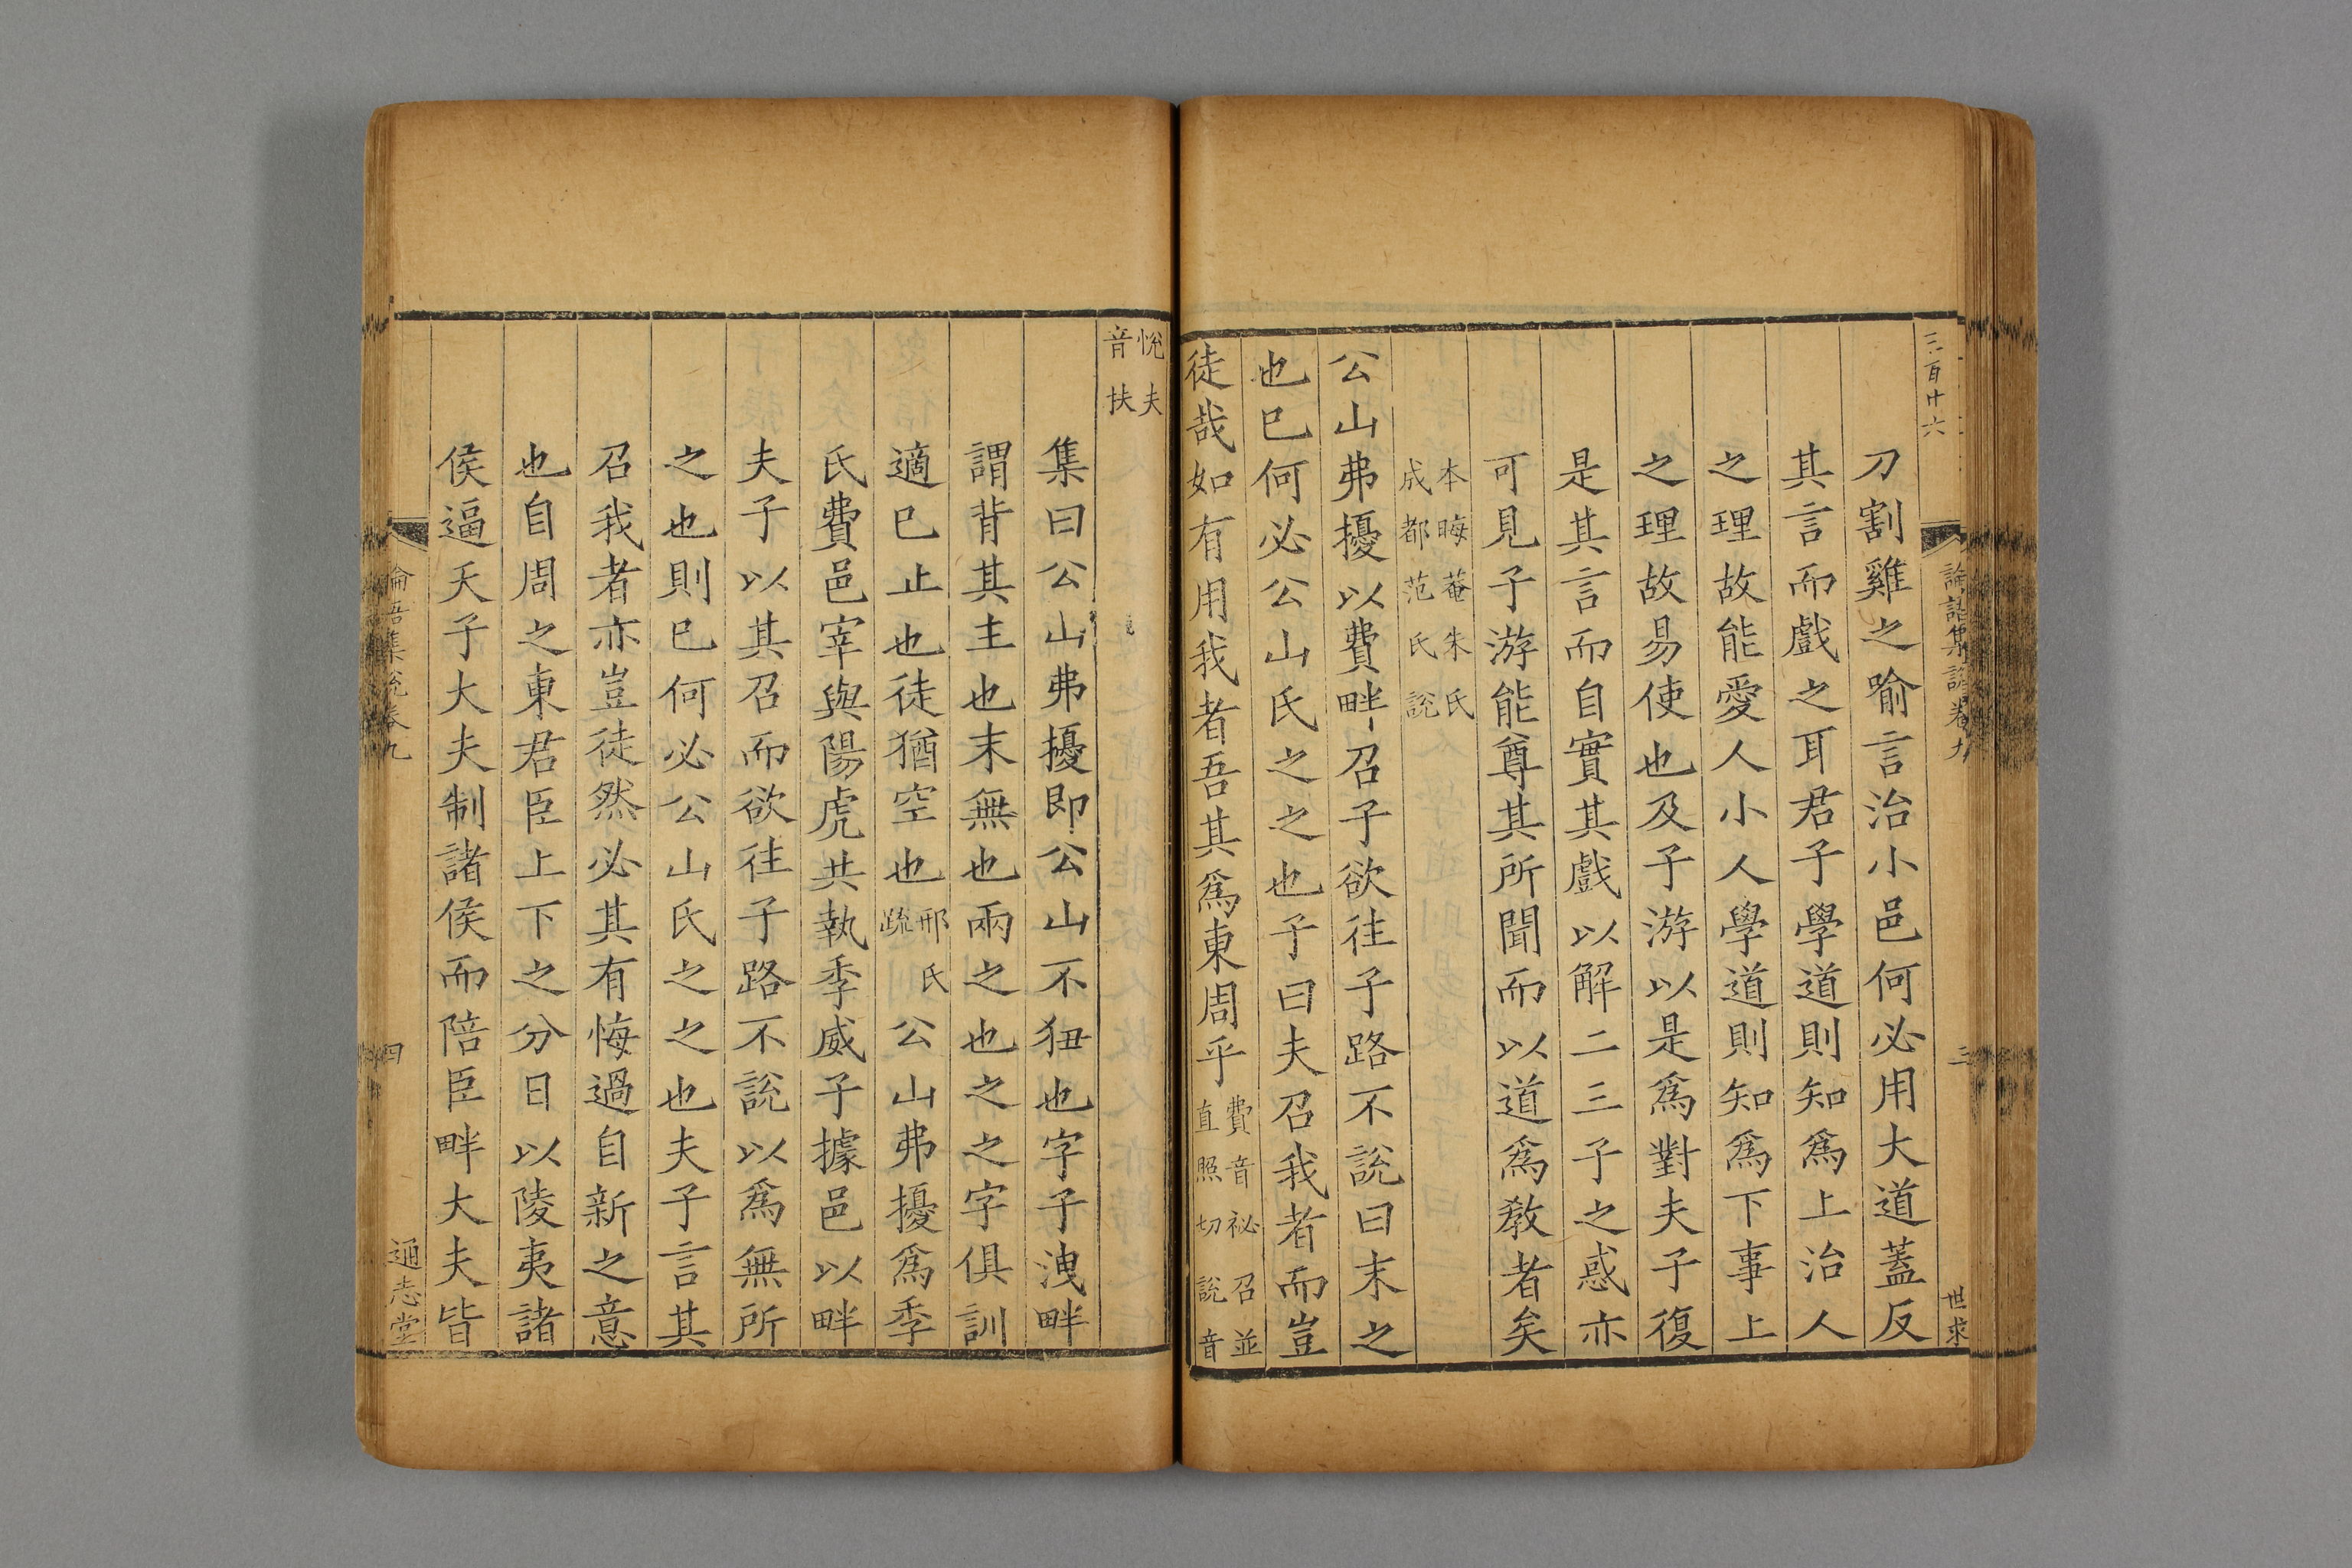 三百十六
論語集說卷九
三
世求
刀割雞之喻言治小邑何必用大道蓋反
其言而戲之耳君子學道則知爲上治人
之理故能愛人小人學道則知爲下事上
之理故易使也及子游以是爲對夫子復
是其言而自實其戲以解二三子之惑亦
可見子游能尊其所聞而以道爲敎者矣
本晦菴朱氏
成都范氏說
公山弗擾以費畔召子欲往子路不說曰末之
也已何必公山氏之之也子曰夫召我者而豈
徒哉如有用我者吾其爲東周乎費音祕召並
直照切說音
悅夫
音扶
集曰公山弗擾即公山不狃也字子洩畔
謂背其主也末無也兩之也之之字俱訓
適已止也徒猶空也邢氏
疏公山弗擾爲季
氏費邑宰與陽虎共執季威子據邑以畔
夫子以其召而欲往子路不說以爲無所
之也則已何必公山氏之之也夫子言其
召我者亦豈徒然必其有悔過自新之意
也自周之東君臣上下之分日以陵夷諸
侯逼天子大夫制諸侯而陪臣畔大夫皆
論語集說卷九
四
通志堂